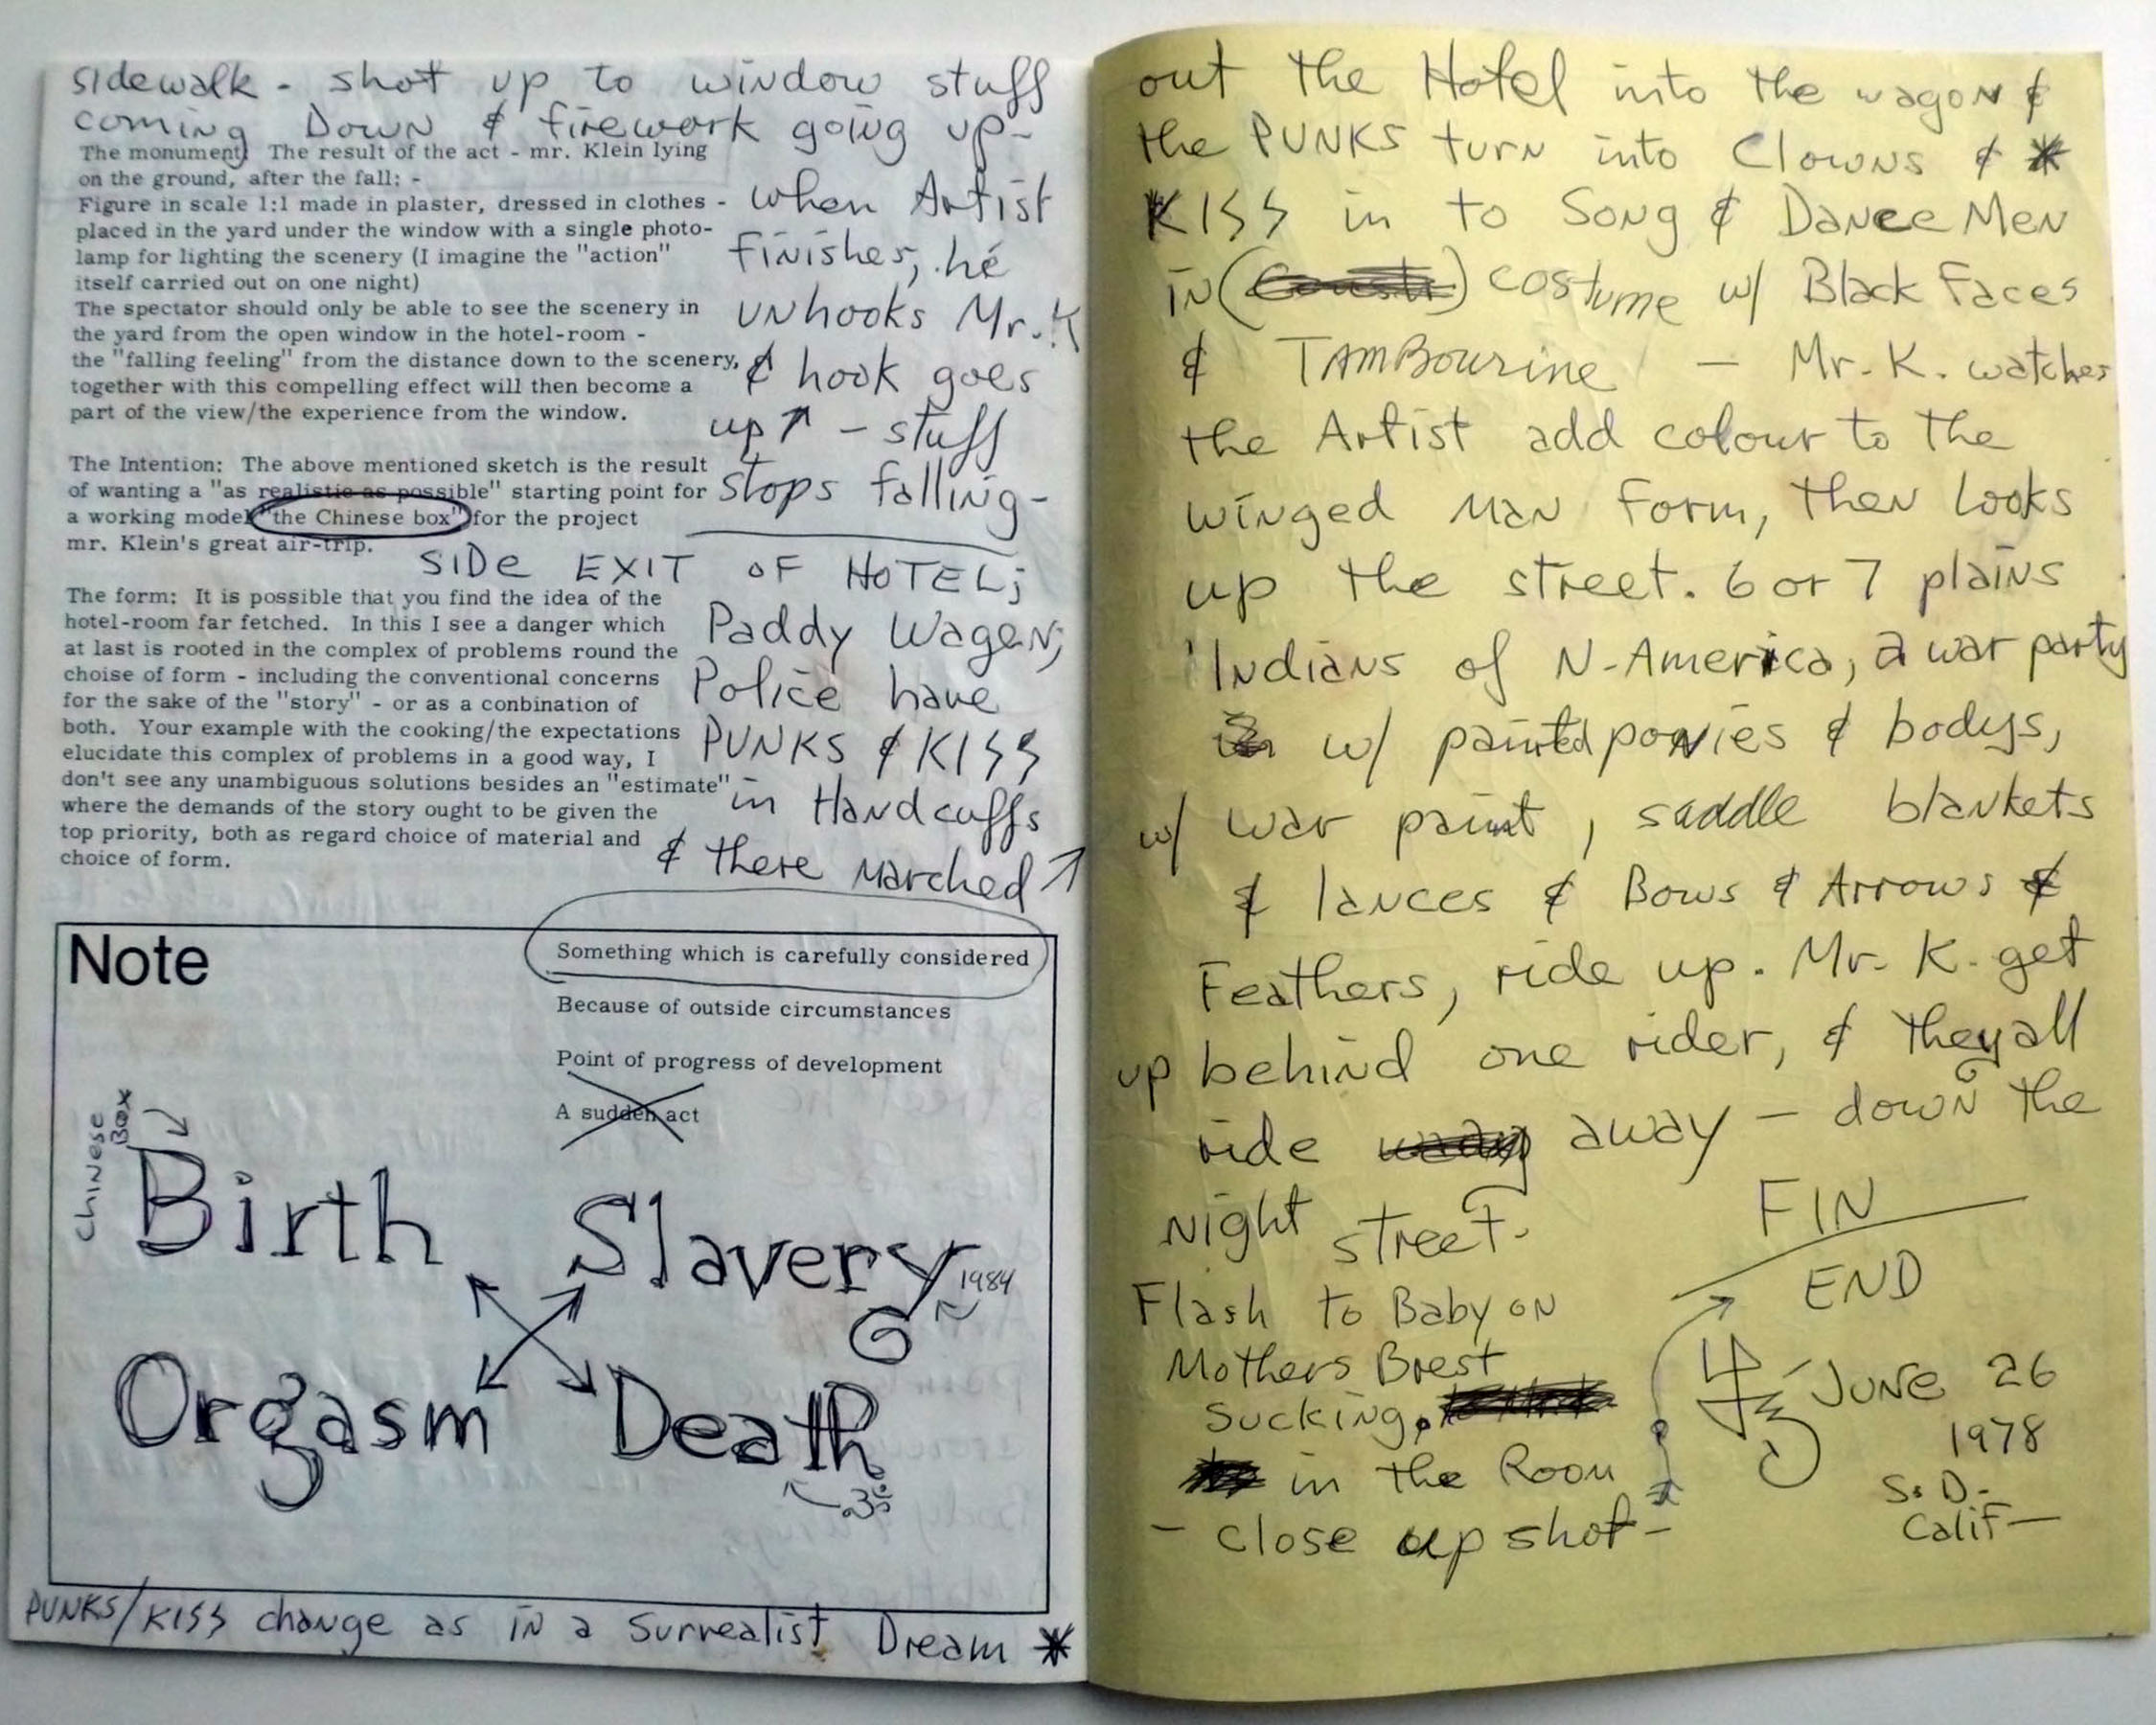 sidewalk - shot up to window stuff
coming Down & firework going up-
The monument: The result of the act - mr. Klein lying
on the ground, after the fall: -
Figure in scale 1:1 made in plaster, dressed in clothes -
placed in the yard under the window with a single photo-
lamp for lighting the scenery (I imagine the "action"
itself carried out on one night)
The spectator should only be able to see the scenery in
the yard from the open window in the hotel-room -
the "falling feeling" from the distance down to the scenery,
together with this compelling effect will then become a
part of the view/the experience from the window.
when Artist
finishes, he
unhooks Mr. K
& hook goes
up ↑ - stuff
stops falling-
The Intention: The above mentioned sketch is the result
of wanting a "as realistic as possible" starting point for
a working model "the Chinese box" for the project
mr. Klein's great air-trip.
SIDE EXIT OF HOTEL;
Paddy Wagen;
Police have
PUNKS & KISS
in Handcuffs
& there marched ↑
The form: It is possible that you find the idea of the
hotel-room far fetched. In this I see a danger which
at last is rooted in the complex of problems round the
choise of form - including the conventional concerns
for the sake of the "story" - or as a conbination of
both. Your example with the cooking/the expectations
elucidate this complex of problems in a good way, I
don't see any unambiguous solutions besides an "estimate"
where the demands of the story ought to be given the
top priority, both as regard choice of material and
choice of form.
Note
Something which is carefully considered
Because of outside circumstances
Point of progress of development
A sudden act
Chinese
Box
Birth Slavery
1984
Orgasm Death
PUNKS/KISS change as in a Surrealist Dream *
out the Hotel into the wagon &
the PUNKS turn into Clowns & *
KISS in to Song & Dance Men
in ( ) costume w/ Black Faces
& TAMBourine - Mr. K. watches
the Artist add colour to the
winged man form, then looks
up the street. 6 or 7 plains
Indians of N-America, a war party
w/ painted ponies & bodys,
w/ war paint, saddle blankets
& lances & Bows & Arrows &
Feathers, ride up. Mr. K. get
up behind one rider, & they all
ride away - down the
night street.
FIN
END
Flash to Baby on
Mothers Brest
sucking,
in the Room
- close up shot -
June 26
1978
S. D.
Calif-